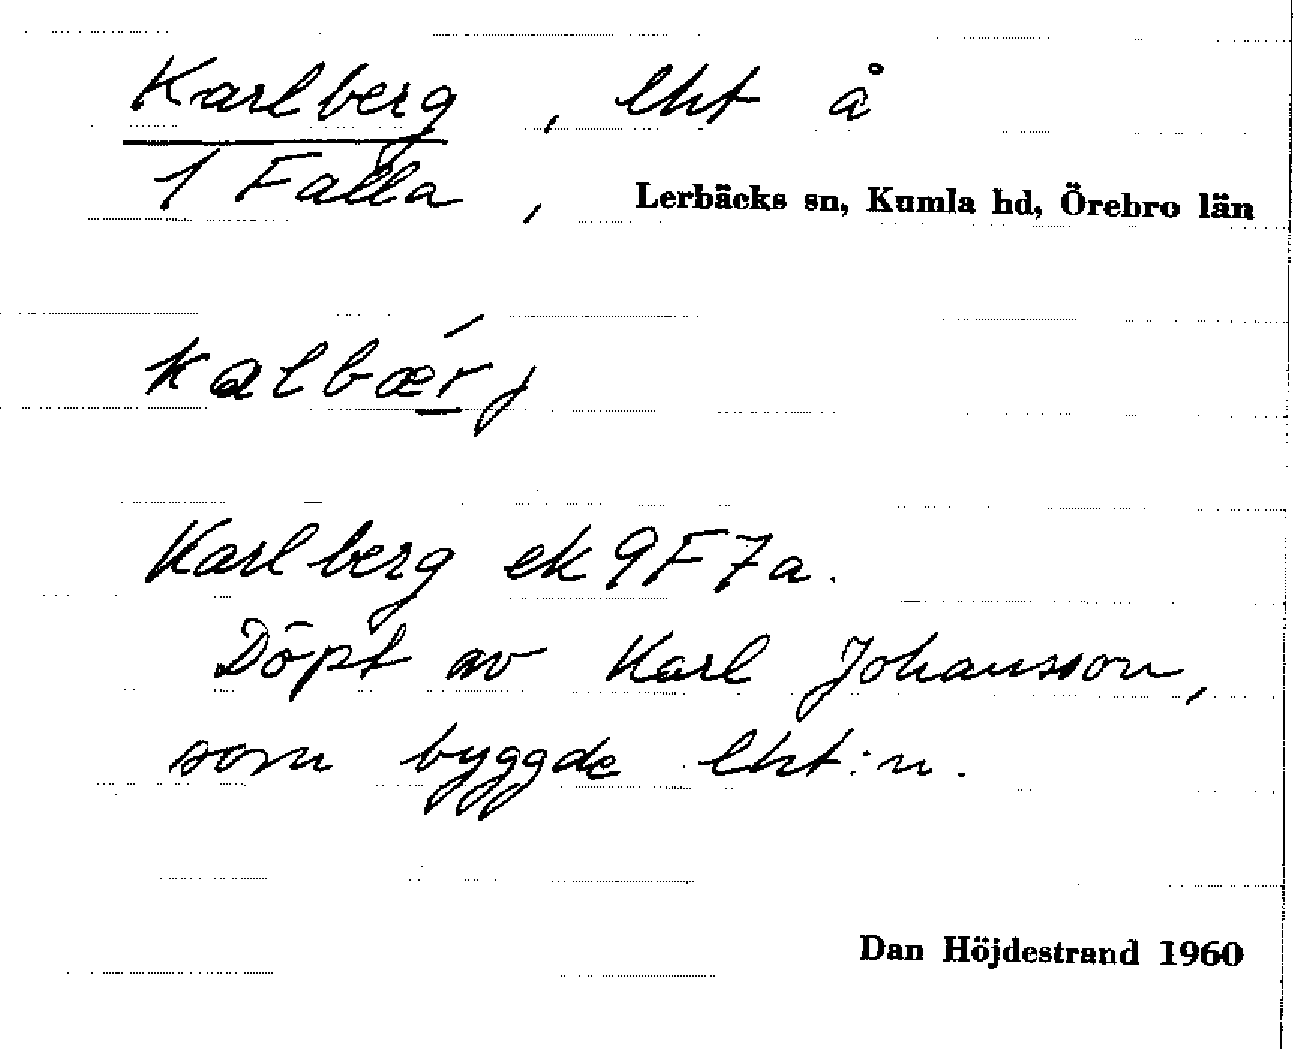 Karlberg, lht å
1 Falla, Lerbäcks sn, Kumla hd, Örebro län
kalbǽrj
Karlberg ek 9F7a.
Döpt av Karl Johansson,
som byggde lht:n.
Dan Höjdestrand 1960